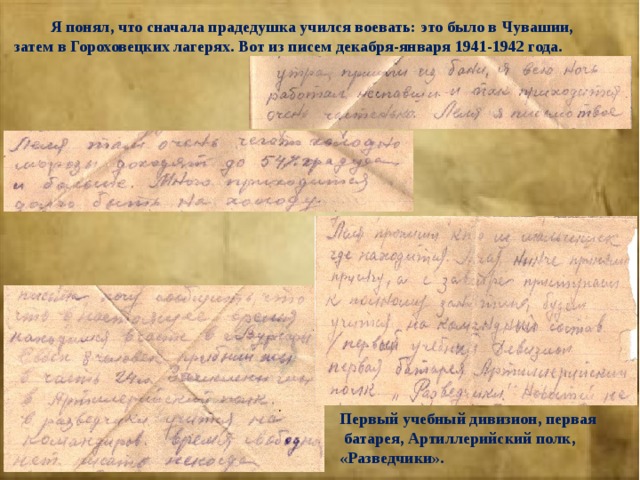 Я понял, что сначала прадедушка учился воевать: это было в Чувашии,
затем в Гороховецких лагерях. Вот из писем декабря-января 1941-1942 года.
утра, пришли из бани, я всю ночь
работал неспавши и так приходится
очень частенько. Леля я письмо твое
Леля там очень чегото холодно
морозы доходят до 54% градуса
и больше. Много приходится
долго быть на холоду.
Леля
где находится. Леля ныне приняли
присягу, а с завтра приступаем
к полному занятию, будем
учится на командный состав
первый учебный Дивизион
первая батарея Артиллерийский
полк "Разведчики". Новостей не
письма хочу сообщить, что
что в настоящее время
находимся в части в
8 человек прибыли мы
в часть 24го
в Артиллерийский полк.
в разведчики учится на
командиров. время свободно
нет писать некогда
Первый учебный дивизион, первая
батарея, Артиллерийский полк,
«Разведчики».